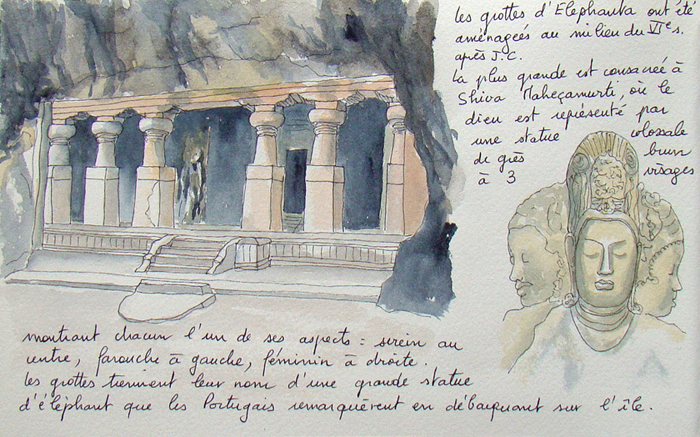 les grottes d'Elephanta ont été
aménagées au milieu du VIe s.
après J.C.
la plus grande est consacrée à
Shiva Maheçamurti, où le
dieu est représenté par
une statue colossale
de grès brun
à 3 visages
montrant chacun l'un de ses aspects : serein au
centre, farouche à gauche, féminin à droite.
les grottes tiennent leur nom d'une grande statue
d'éléphant que les Portugais remarquèrent en débarquant sur l'île.